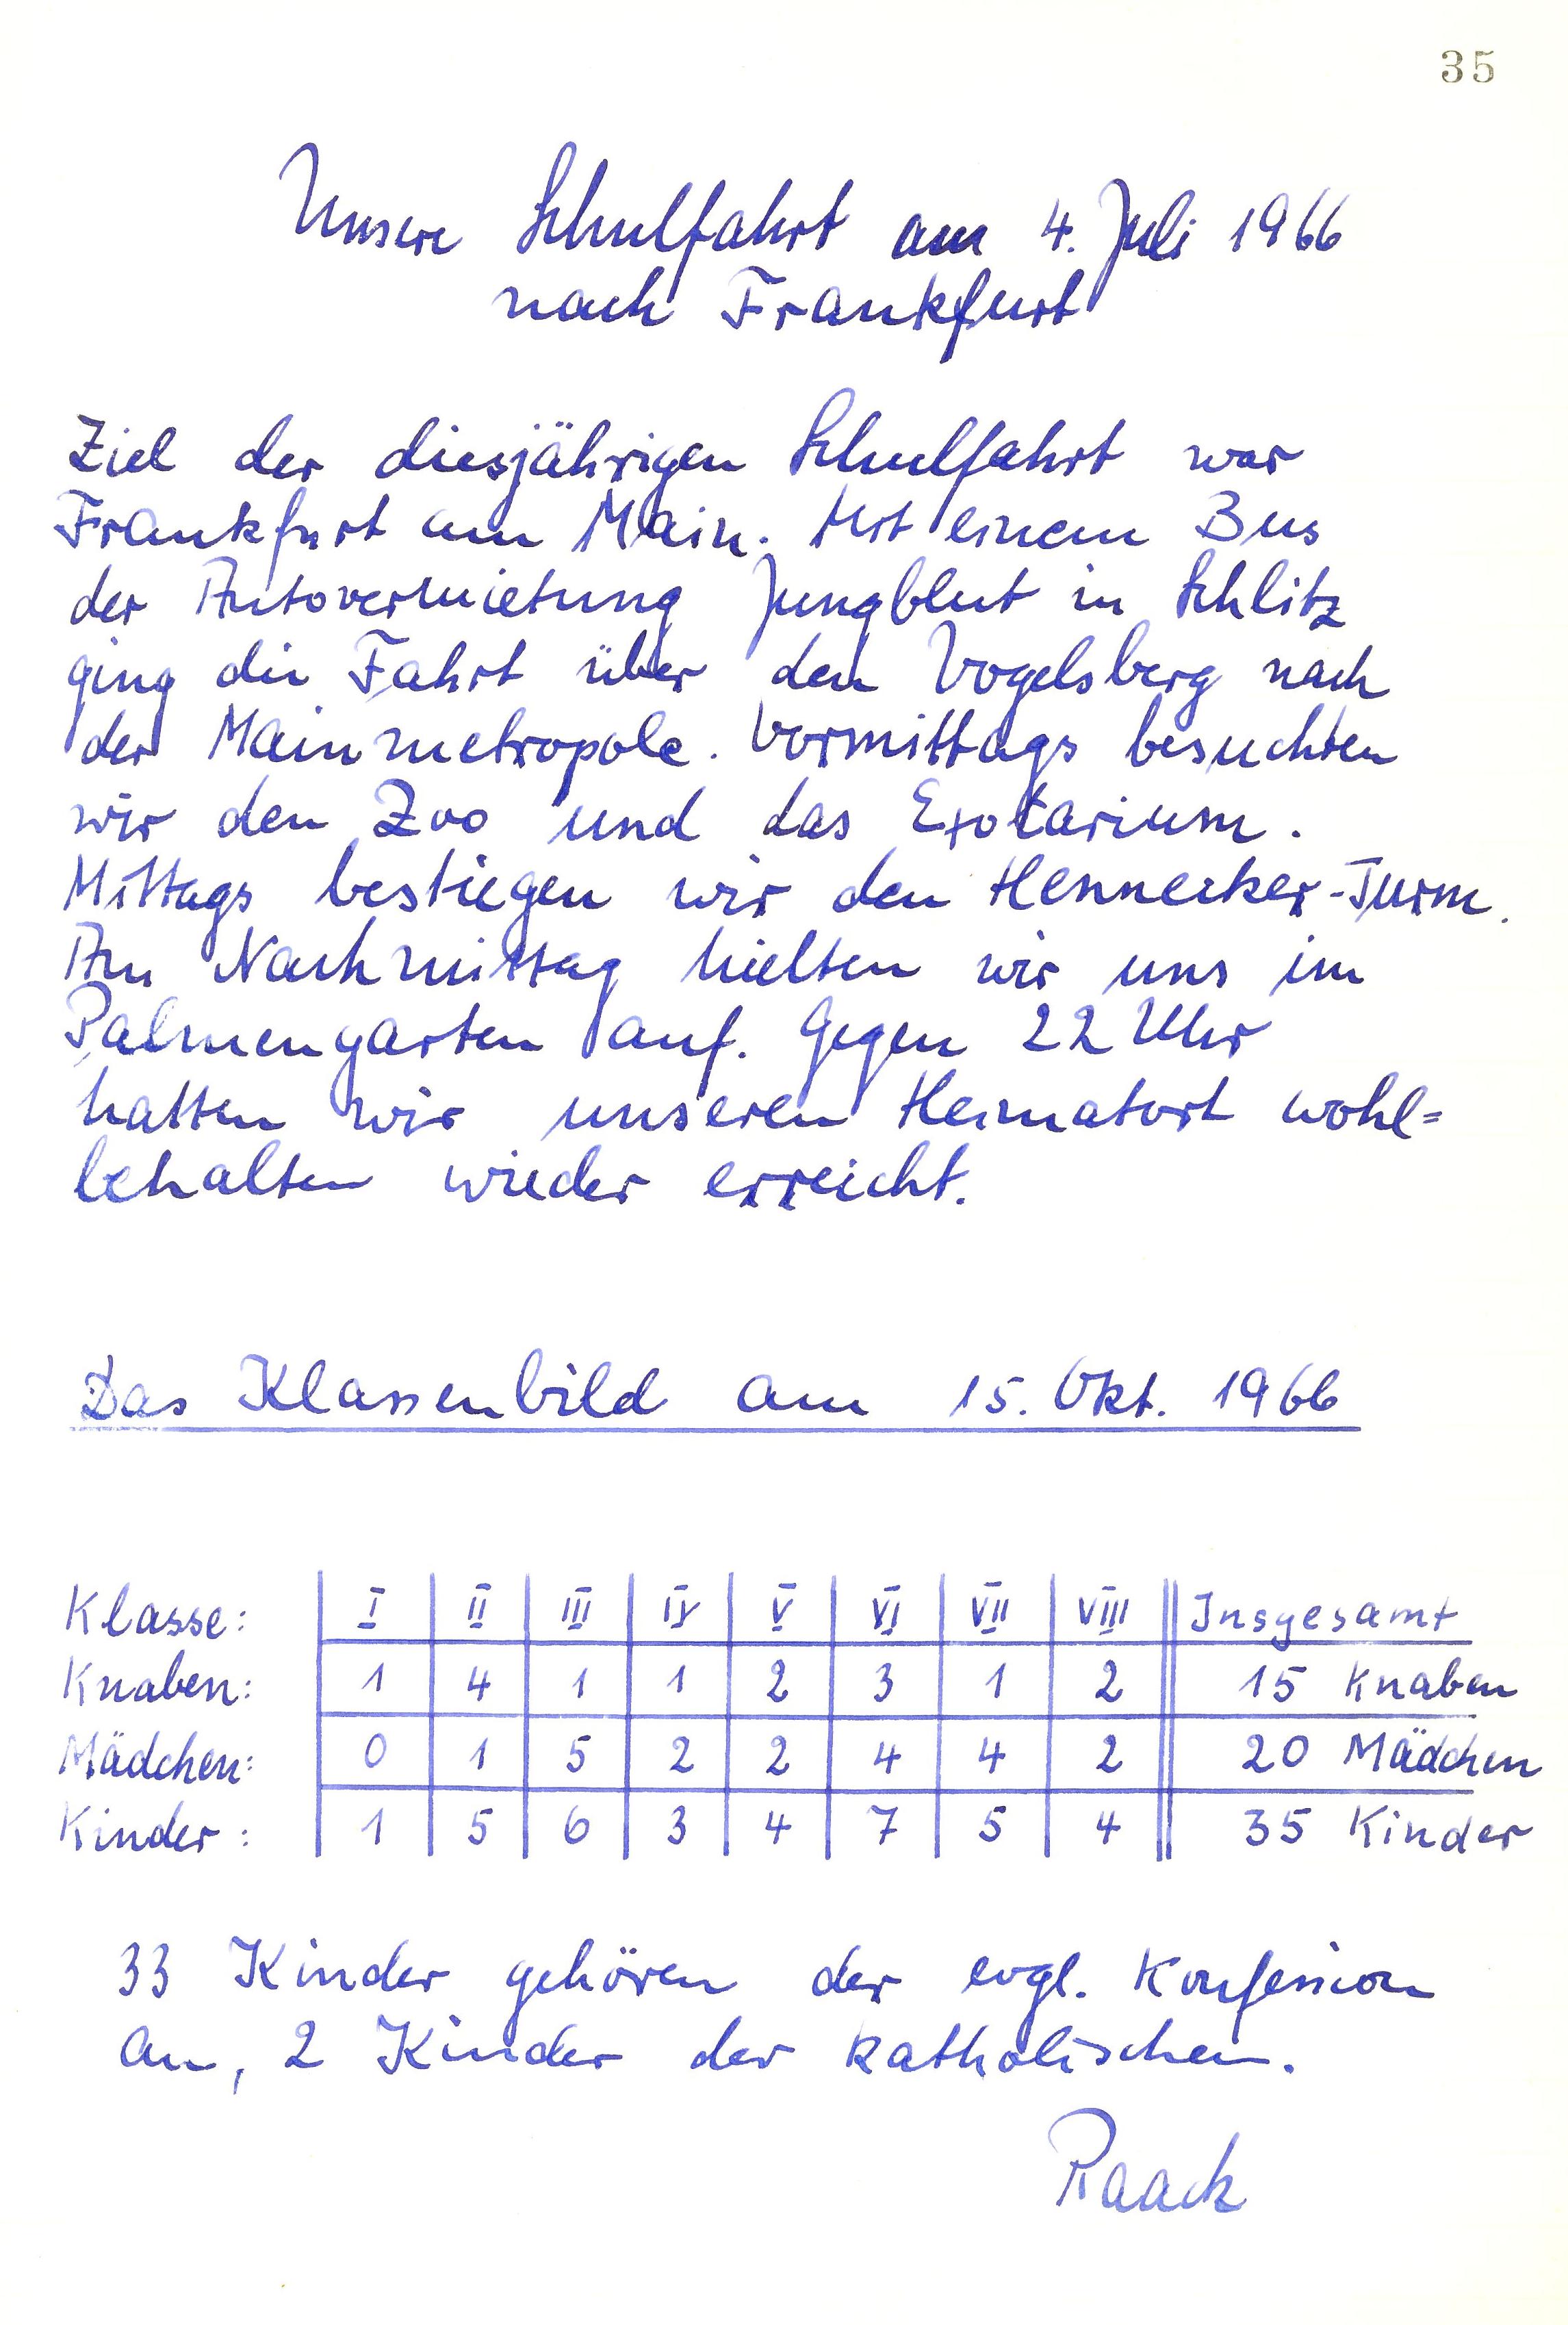 35
Unsere Schulfahrt am 4. Juli 1966
nach Frankfurt
Ziel der diesjährigen Schulfahrt war
Frankfurt am Main. Mit einem Bus
der Autovermietung Jungblut in Schlitz
ging die Fahrt über den Vogelsberg nach
der Mainmetropole. Vormittags besuchten
wir den Zoo und das Exotarium.
Mittags bestiegen wir den Hennecker-Turm.
Am Nachmittag hielten wir uns im
Palmengarten auf. Gegen 22 Uhr
hatten wir unseren Heimatort wohl=
behalten wieder erreicht.
Das Klassenbild am 15. Okt. 1966
Klasse: I II III IV V VI VII VIII Insgesamt
Knaben: 1 4 1 1 2 3 1 2 15 Knaben
Mädchen: 0 1 5 2 2 4 4 2 20 Mädchen
Kinder: 1 5 6 3 4 7 5 4 35 Kinder
33 Kinder gehören der evgl. Konfession
an, 2 Kinder der katholischen.
Raack